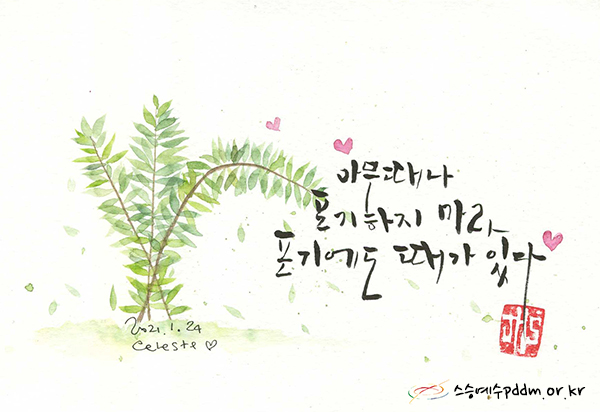 아무때나
포기하지 마라
포기에도 때가 있다
2021.1.24
Celeste ♡
스승예수pddm.or.kr